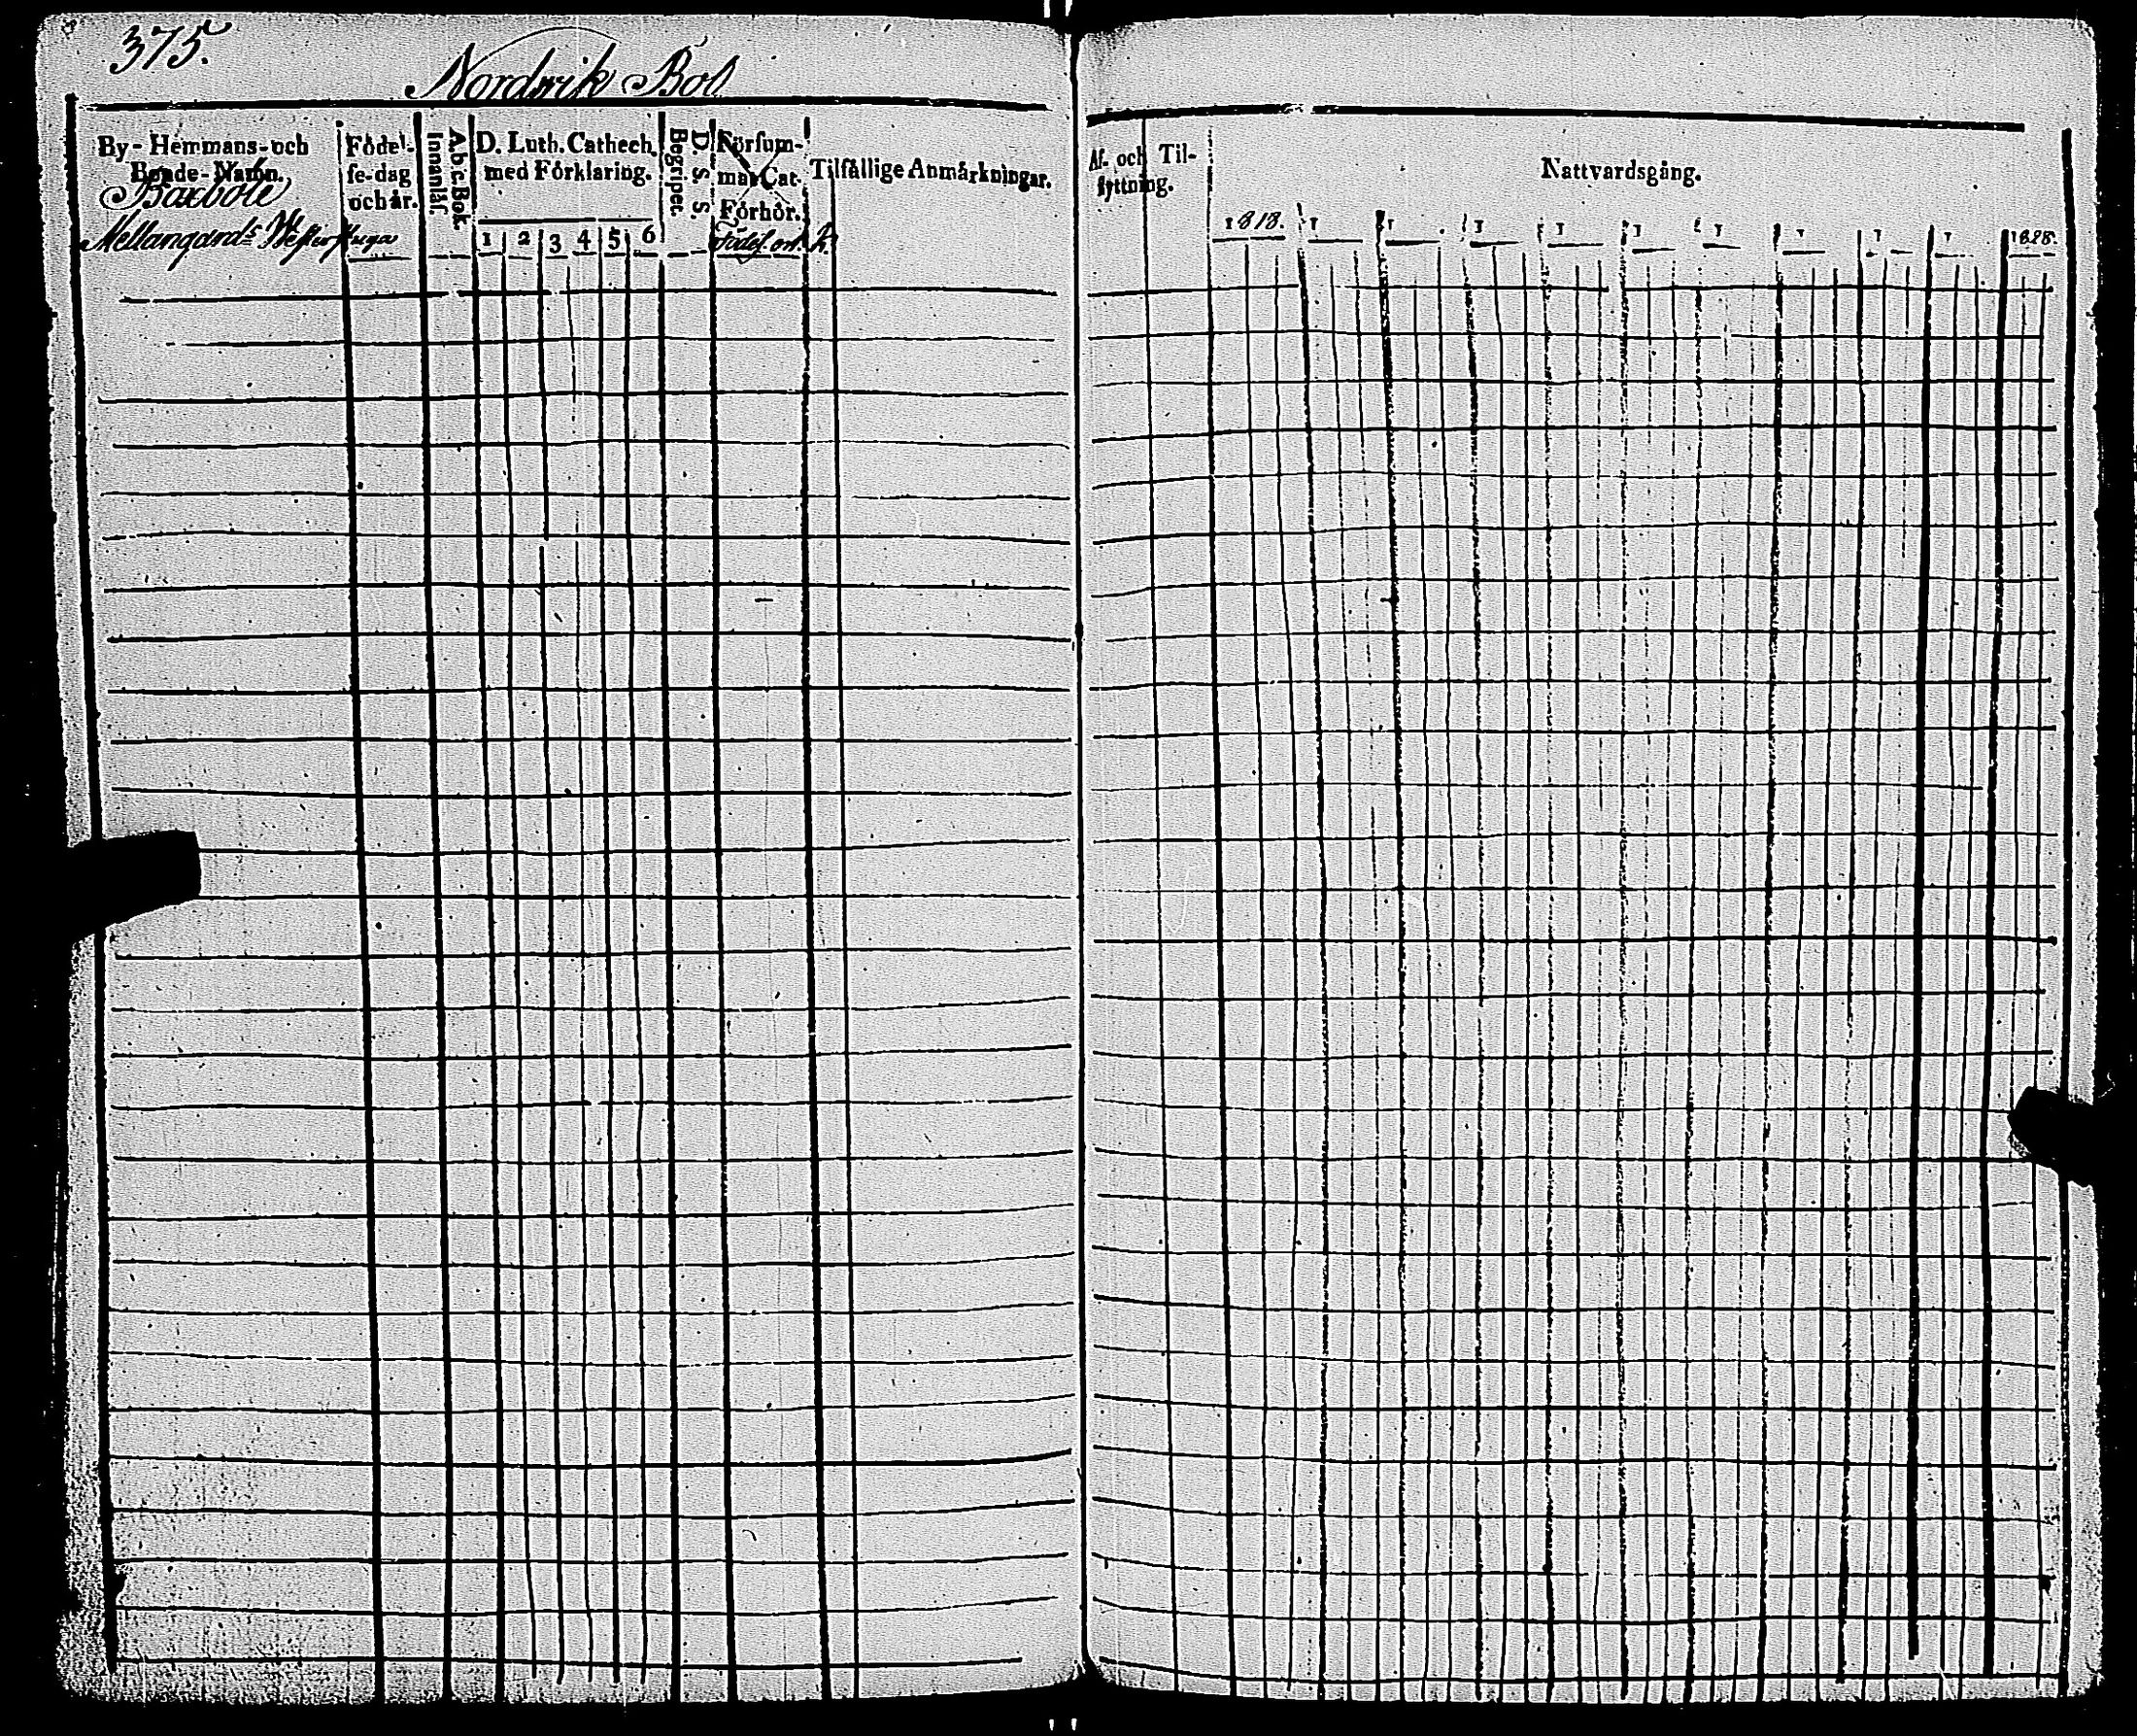 375.
Nordwik Bol
By- Hemmans- och
Bonde- Namn.
Baxböle
Mellangårds
Födel-
se-dag
och år.
A b c Bok
Innanläs.
D. Luth. Cathech.
med Förklaring.
1 2 3 4 5 6
D. S. S.
Begripet.
Försum-
mat Cat.
Förhör.
Födels. ort.
Tilfällige Anmärkningar.
Af- och Til-
flyttning.
Nattvardsgång.
1818. 1 1 1 1 1 1 1 1 1 1828.